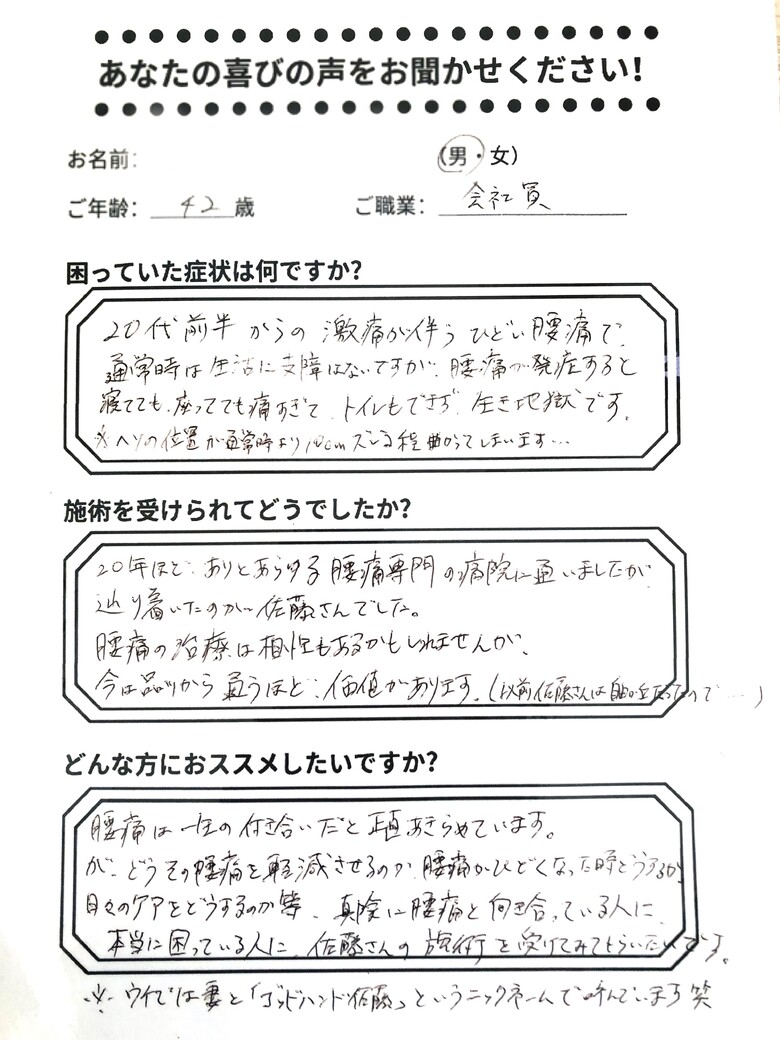 あなたの喜びの声をお聞かせください!
お名前: (男・女)
ご年齢: 42歳 ご職業: 会社員
困っていた症状は何ですか?
20代前半からの激痛が伴うひどい腰痛で、
通常時は生活に支障はないですが、腰痛が発症すると
寝てても、座ってても痛すぎて、トイレもできず、生き地獄です。
※ヘソの位置が通常時より10cmズレる程曲がってしまいます…
施術を受けられてどうでしたか?
20年ほど、ありとあらゆる腰痛専門の病院に通いましたが
辿り着いたのが佐藤さんでした。
腰痛の治療は相性もあるかもしれませんが、
今は品川から通うほど、価値があります。(以前佐藤さんは自由が丘だったので…)
どんな方におススメしたいですか?
腰痛は一生の付き合いだと正直あきらめています。
が、どうその腰痛を軽減させるのか、腰痛がひどくなった時どうするか、
日々のケアをどうするのか等、真険に腰痛と向き合っている人に、
本当に困っている人に、佐藤さんの施術を受けてみてもらいたいです。
※ウチでは妻と「ゴッドハンド佐藤」というニックネームで呼んでいます笑